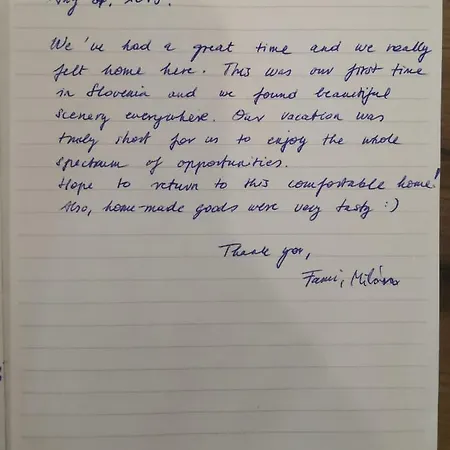 We've had a great time and we really
felt home here. This was our first time
in Slovenia and we found beautiful
scenery everywhere. Our vacation was
truly short for us to enjoy the whole
spectrum of opportunities.
Hope to return to this comfortable home!
Also, home-made goods were very tasty :)
Thank you,